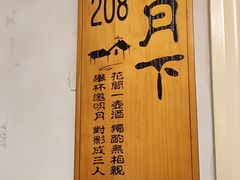 208
月下
花間一壺酒 獨酌無相親
舉杯邀明月 對影成三人